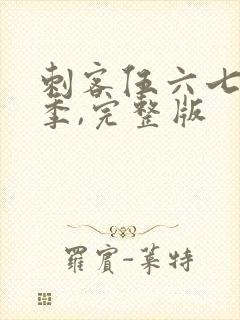 刺客伍六七
季,完整版
羅賓-萊特